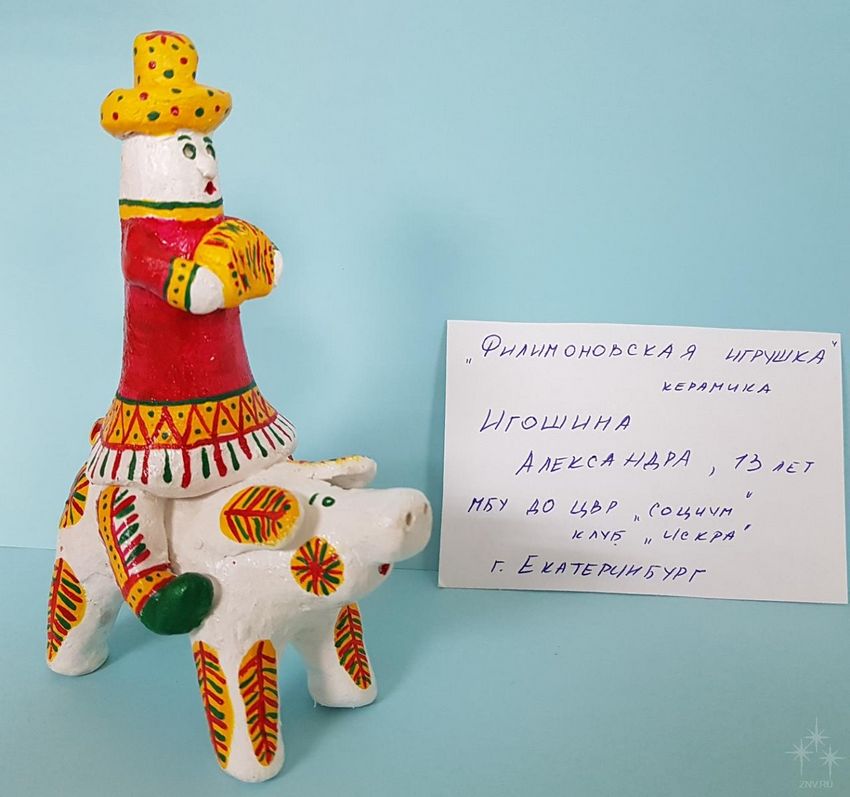 „Филимоновская игрушка"
керамика
Игошина
Александра, 13 лет
МБУ ДО ЦВР „Социум"
клуб „Искра"
г. Екатеринбург
ZNV.RU